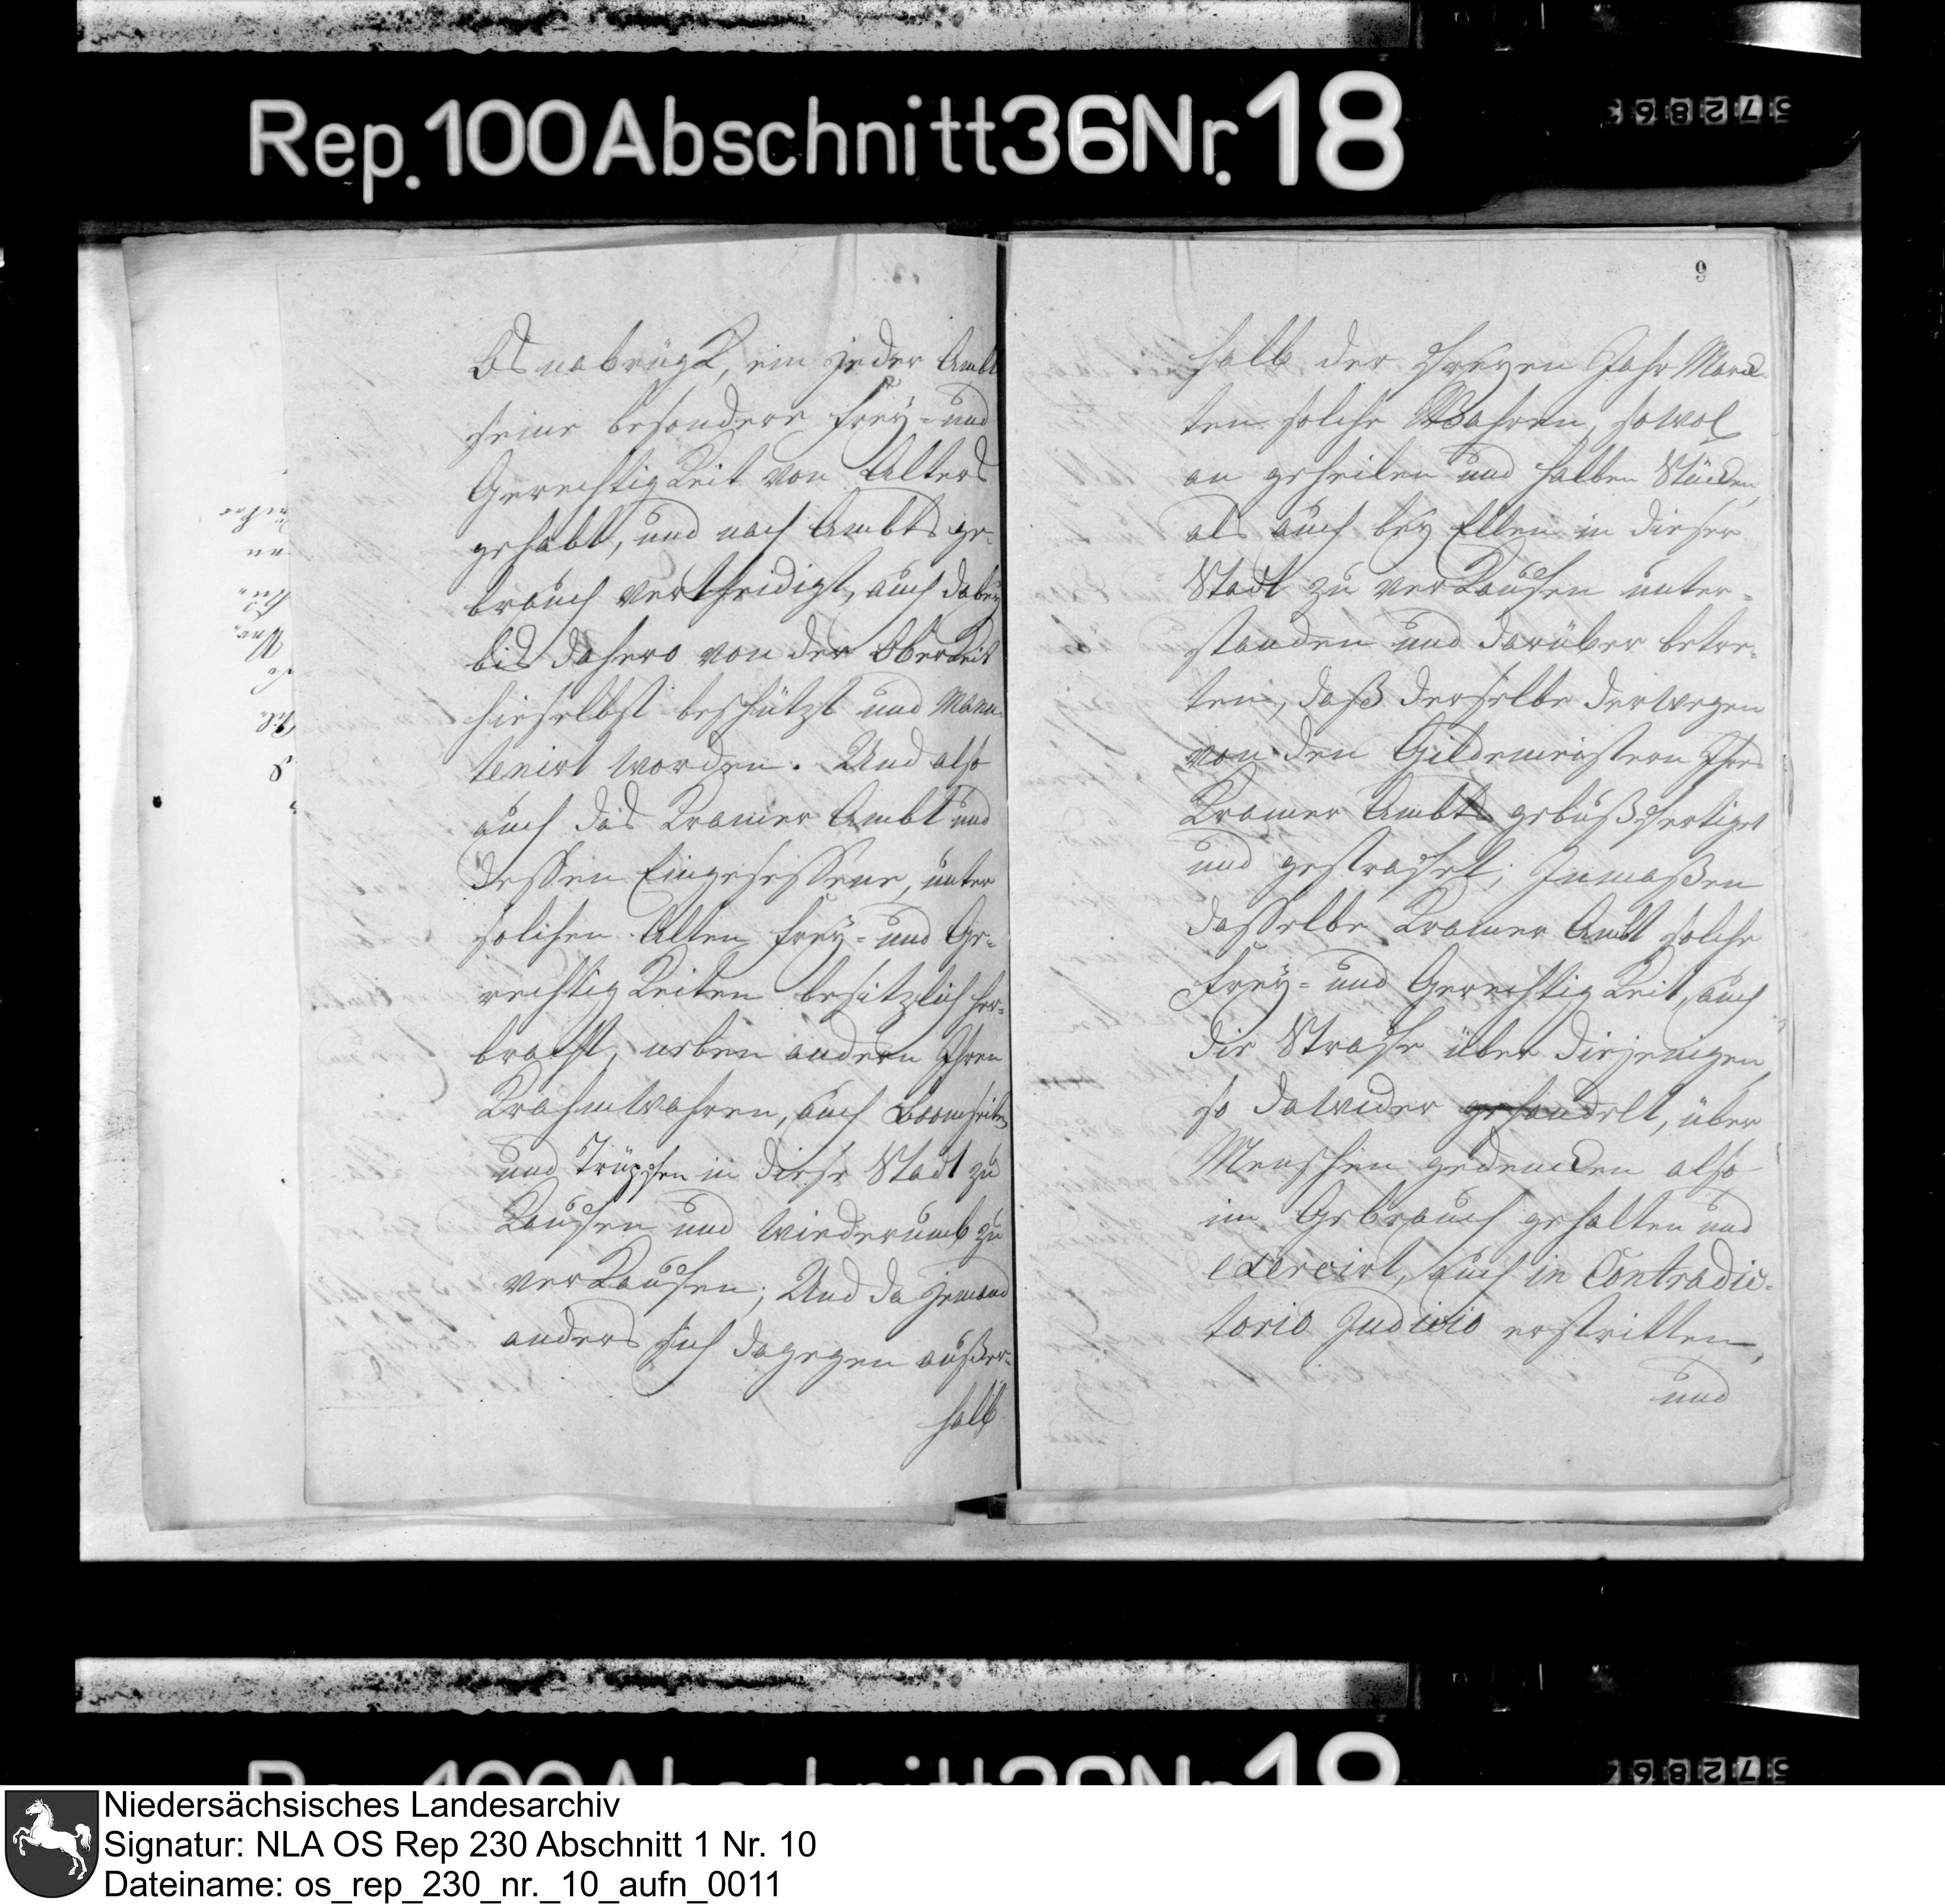 Rep. 100 Abschnitt 36 Nr. 18
572863
Osnabrügk, ein jeder Ambt
seine besondere Frey- und
Gerechtigkeit von Alters
gehabt, und nach Ambts ge-
brauch vertheidigt, auch dabey
bis dahero von der Oberkeit
hieselbst beschützt und manu
tenirt worden. Und also
auch das Kramer Ambt und
dessen Eingesessene, unter
solchen Alten Frey- und Ge-
rechtigkeiten besitzlich her-
bracht, neben andern Ihren
Krahmwahren, auch
und Trüpfen in diese Stadt zu
Kauffen und wiederumb zu
verkauffen; Und da jemand
anders sich dagegen außer-
halb
9
halb der Freyen Jahr Marck
ten solche Wahren, sowol
an geheilen und halben Stücken,
als auch bey Ellen in dieser
Stadt zu verkauffen unter-
standen und darüber betre-
ten, daß derselbe derwegen
von den Gildemeistern Ihres
Kramer Ambts gebußfertiget
und gestraffet; Inmaßen
dasselbe Kramer Ambt solche
Frey- und Gerechtigkeit, auch
die Straffe über diejenigen,
so dawider gehandelt, über
Menschen gedencken also
im Gebrauch gehalten und
exercirt, auch in Contradic-
torio Judicio erstritten,
und
572863
Niedersächsisches Landesarchiv
Signatur: NLA OS Rep 230 Abschnitt 1 Nr. 10
Dateiname: os_rep_230_nr._10_aufn_0011